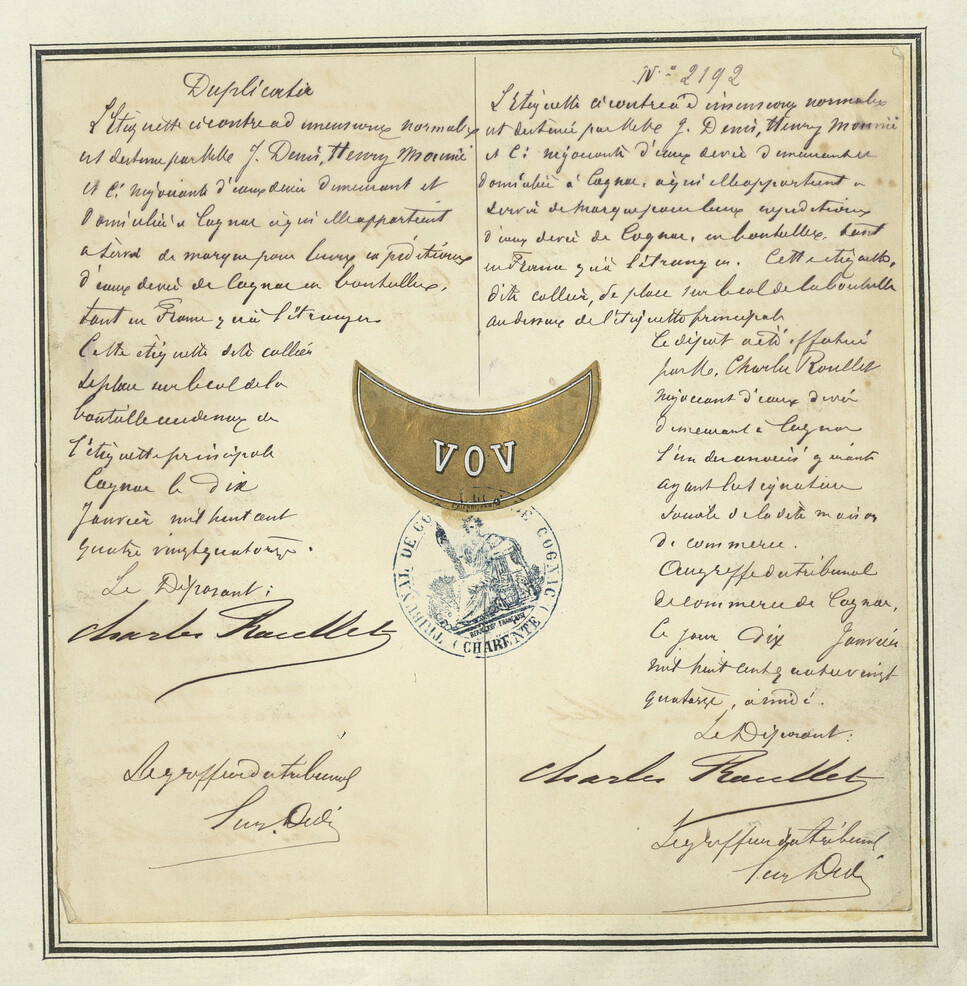 Duplicata
L'Etiquette ci contre a d
normales
est destinée par M J. Denis, Henry Mounié
et Cie négociants d'eaux de vie demeurant et
domiciliés à Cognac à qui elle appartient
a servir de marque pour leurs expéditions
d'eaux de vie de Cognac en bouteilles,
tant en France qu'à l'étranger.
Cette étiquette dite collier
se place sur le col de la
bouteille au dessus de
l'étiquette principale
Cognac le Dix
Janvier mil huit cent
quatre vingt quatorze.
Le Déposant:
Charles Roullet
Le greffier du tribunal
N° 2192
L'Etiquette ci contre a d
normales
est destinée par J. Denis, Henry Mounié
et Cie négociants d'eaux de vie demeurant et
domiciliés à Cognac, à qui elle appartient a
servir de marque pour leurs expéditions
d'eaux de vie de Cognac, en bouteilles, tant
en France qu'à l'étranger. Cette étiquette,
dite collier, se place sur le col de la bouteille
au dessus de l'étiquette principale
Le dépot a été effectué
par M. Charles Roullet
négociant d'eaux de vie
demeurant à Cognac
l'un des associés gérants
ayant la signature
sociale de la dite maison
de commerce.
Au greffe du tribunal
de commerce de Cognac,
Ce jour dix Janvier
mil huit cent quatre vingt
quatorze, à midi.
Le Déposant:
Charles Roullet
Le greffier du tribunal
VOV
TRIBUNAL DE COMMERCE DE COGNAC
REPUBLIQUE FRANÇAISE
(CHARENTE)